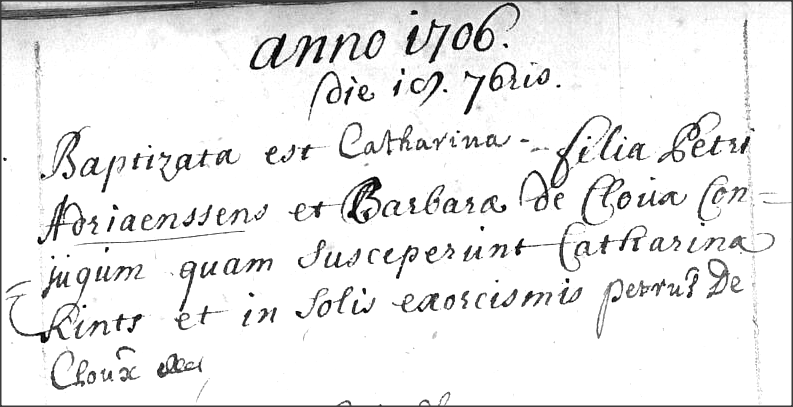 anno 1706.
die 19. 7bris.
Baptizata est Catharina - filia Petri
Adriaenssens et Barbaræ de Cloua Con=
=jugum quam susceperunt Catharina
Kints et in solis exorcismis petrus De